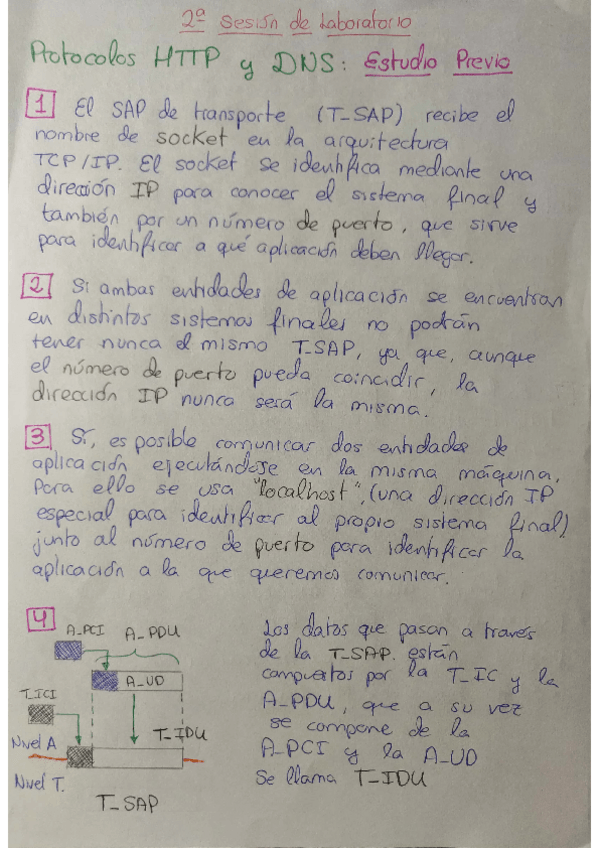 2ª Sesión de Laboratorio
Protocolos HTTP y DNS: Estudio Previo
1 El SAP de transporte (T_SAP) recibe el
nombre de socket en la arquitectura
TCP/IP. El socket se identifica mediante una
dirección IP para conocer el sistema final y
también por un número de puerto, que sirve
para identificar a qué aplicación deben llegar.
2 Si ambas entidades de aplicación se encuentran
en distintos sistemas finales no podrán
tener nunca el mismo T_SAP, ya que, aunque
el número de puerto pueda coincidir, la
dirección IP nunca será la misma.
3 Sí, es posible comunicar dos entidades de
aplicación ejecutándose en la misma máquina.
Para ello se usa "localhost", (una dirección IP
especial para identificar al propio sistema final)
junto al número de puerto para identificar la
aplicación a la que queremos comunicar.
4
A_PCI A_PDU
A_UD
T_ICI
T_IDU
Nivel A
Nivel T.
T_SAP
Los datos que pasan a través
de la T_SAP. están
compuestos por la T_IC y la
A_PDU, que a su vez
se compone de la
A_PCI y la A_UD
Se llama T_IDU